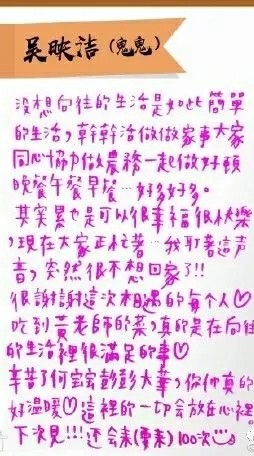 吴映洁(鬼鬼)
没想向往的生活是如此簡單
的生活,幹幹活做做家事大家
同心協力做農務一起做好頓
晚餐午餐早餐…好多好多。
其實累也是可以很幸福很快樂
,現在大家正忙著…我聽著這声
音,突然很不想回家了!!
很謝謝這次相遇的每个人♡
吃到黃老師的菜,真的是在向往
的生活裡很滿足的事♡
辛苦了何宝宝彭彭大華,你们真的
好溫暖♡這裡的一切会放在心裡。
下次見!!!还会来(要来)100次☺